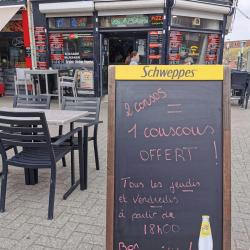 Schweppes
2 consos
=
1 couscous
OFFERT !
Tous les jeudis
et Vendredis
à partir de
18h00
Bon